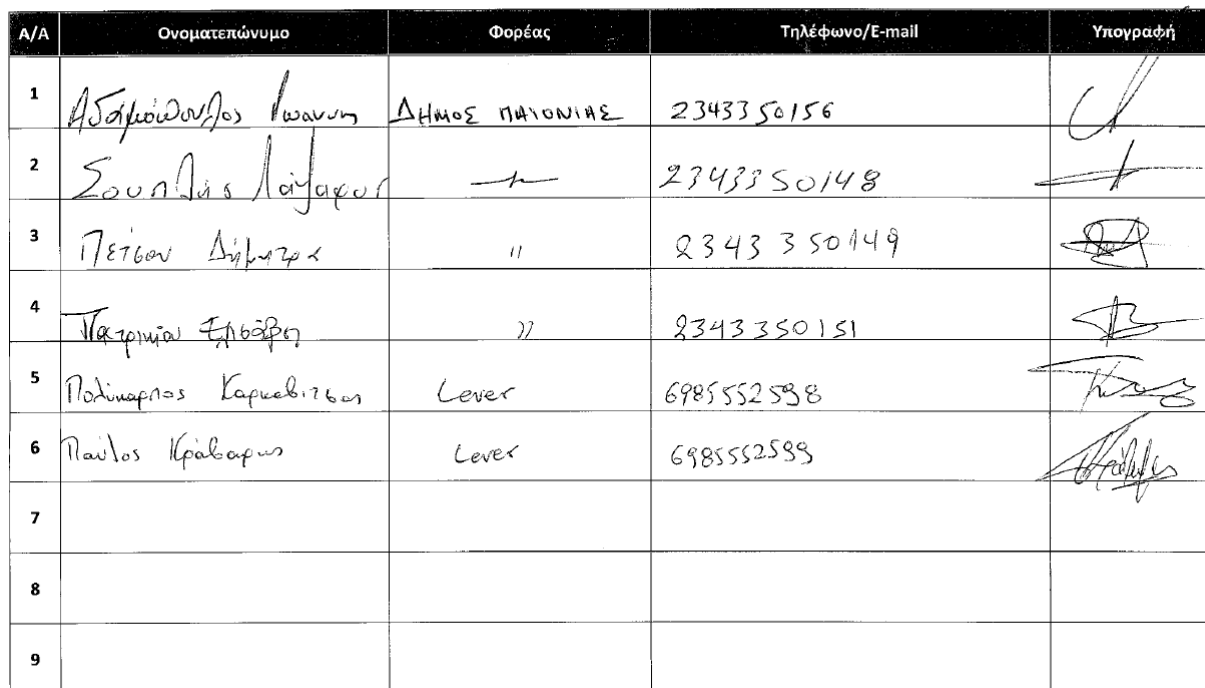 Α/Α Ονοματεπώνυμο Φορέας Τηλέφωνο/E-mail Υπογραφή
1 Αδαμόπουλος Ιωάννης ΔΗΜΟΣ ΠΑΙΟΝΙΑΣ 2343350156
2 Σουπλής Λάζαρος 2343350148
3 Πέτσου Δήμητρα " 2343350149
4 Πατρικίου Ελισάβετ " 2343350151
5 Πολύκαρπος Καρκαβίτσας Lever 6985552598
6 Παύλος Κράβαρης Lever 6985552599
7
8
9